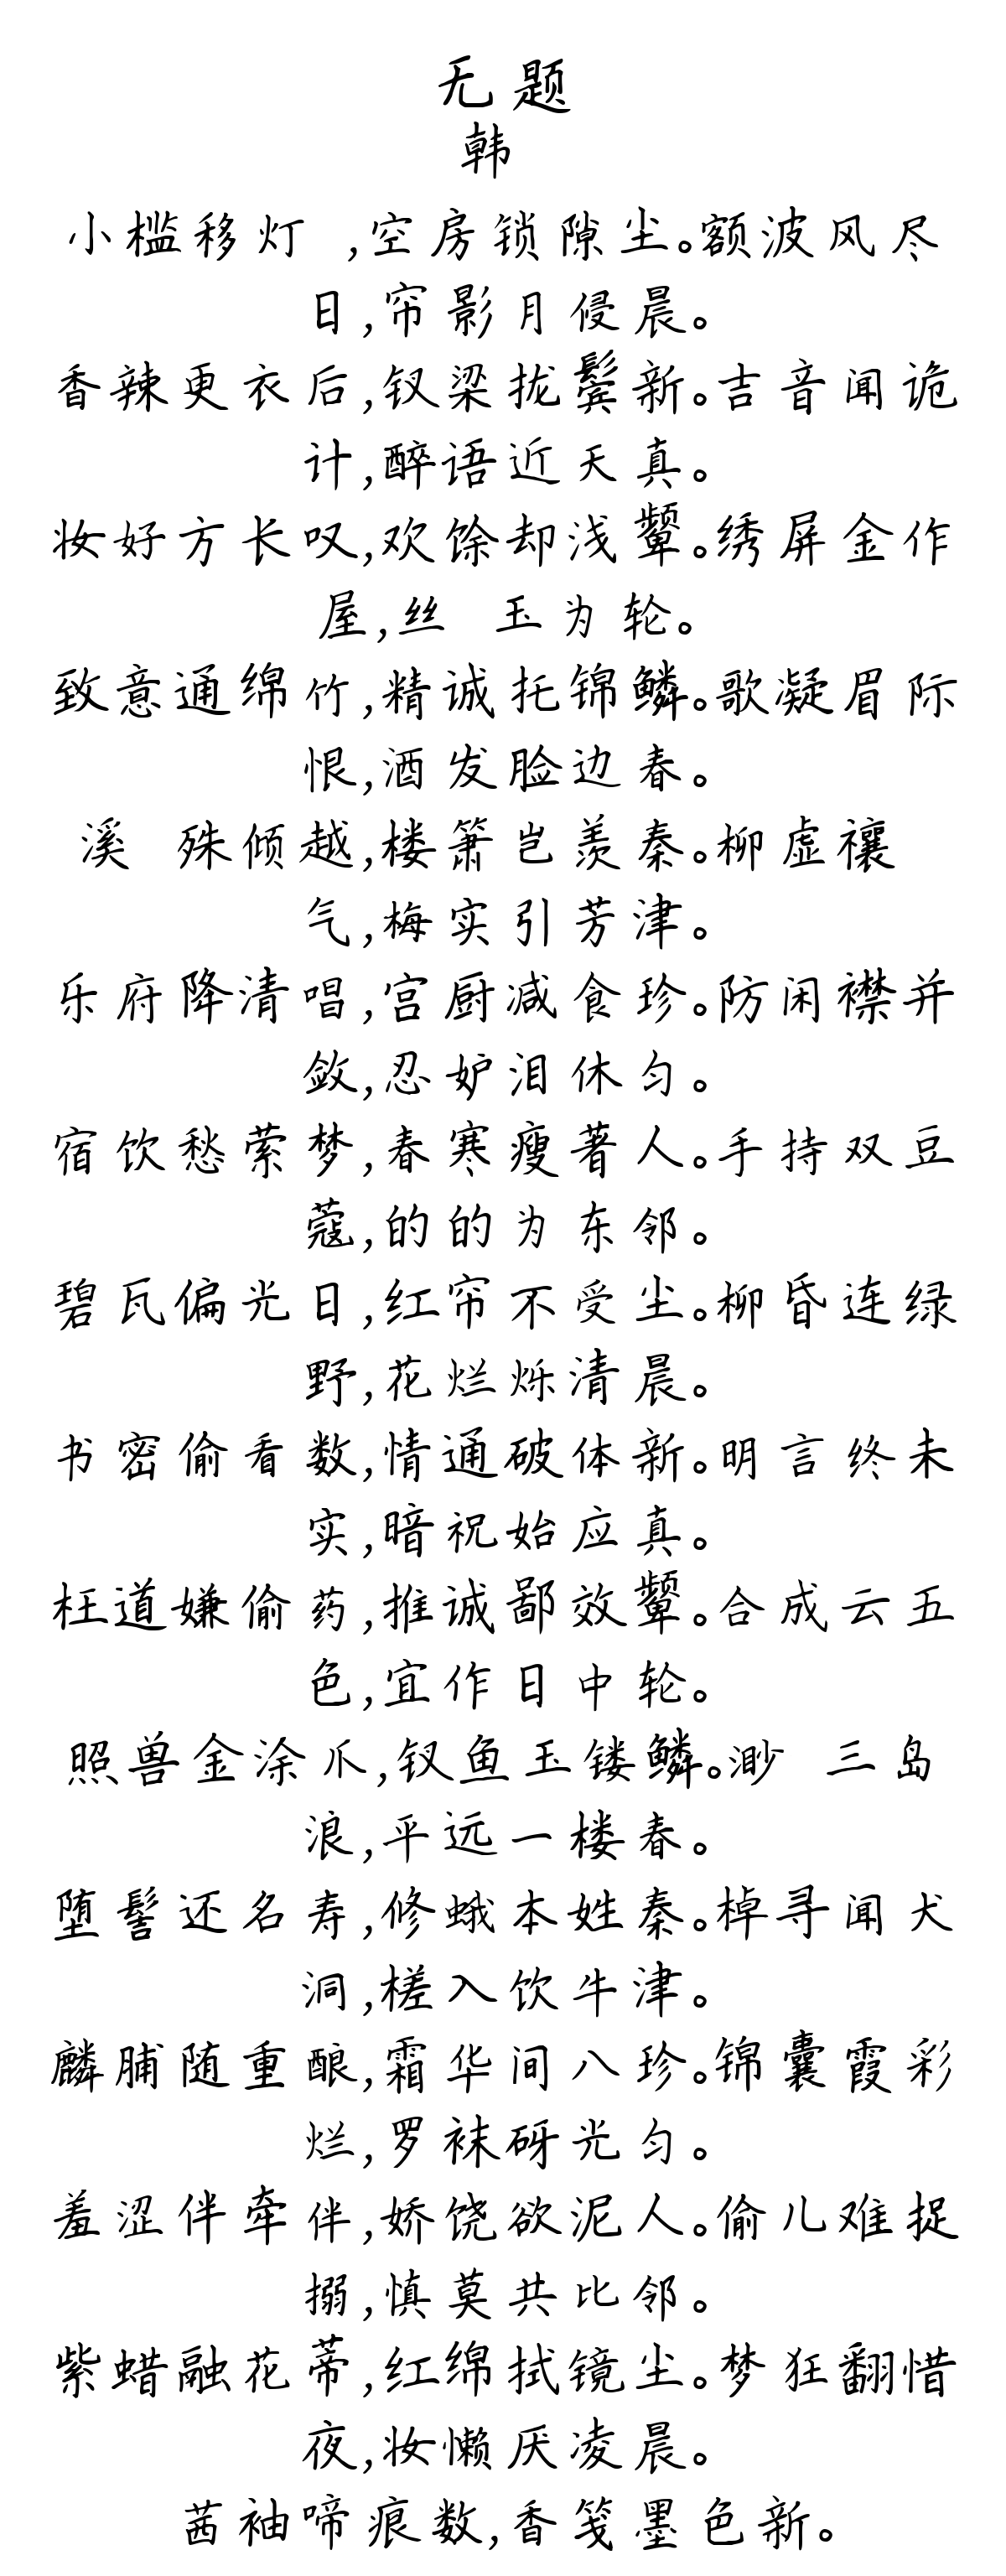 无题
韩
小槛移灯 ,空房锁隙尘。额波风尽
日,帘影月侵晨。
香辣更衣后,钗梁拢鬓新。吉音闻诡
计,醉语近天真。
妆好方长叹,欢馀却浅颦。绣屏金作
屋,丝 玉为轮。
致意通绵竹,精诚托锦鳞。歌凝眉际
恨,酒发脸边春。
溪 殊倾越,楼箫岂羡秦。柳虚禳
气,梅实引芳津。
乐府降清唱,宫厨减食珍。防闲襟并
敛,忍妒泪休匀。
宿饮愁萦梦,春寒瘦著人。手持双豆
蔻,的的为东邻。
碧瓦偏光日,红帘不受尘。柳昏连绿
野,花烂烁清晨。
书密偷看数,情通破体新。明言终未
实,暗祝始应真。
枉道嫌偷药,推诚鄙效颦。合成云五
色,宜作日中轮。
照兽金涂爪,钗鱼玉镂鳞。渺 三岛
浪,平远一楼春。
堕髻还名寿,修蛾本姓秦。棹寻闻犬
洞,槎入饮牛津。
麟脯随重酿,霜华间八珍。锦囊霞彩
烂,罗袜砑光匀。
羞涩伴牵伴,娇饶欲泥人。偷儿难捉
搦,慎莫共比邻。
紫蜡融花蒂,红绵拭镜尘。梦狂翻惜
夜,妆懒厌凌晨。
茜袖啼痕数,香笺墨色新。